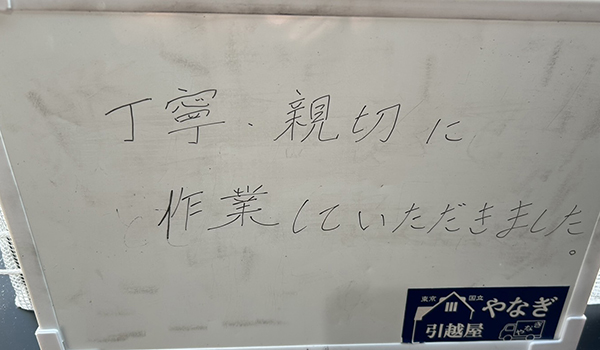 丁寧、親切に
作業していただきました。
東京 国立 やなぎ
引越屋 やなぎ